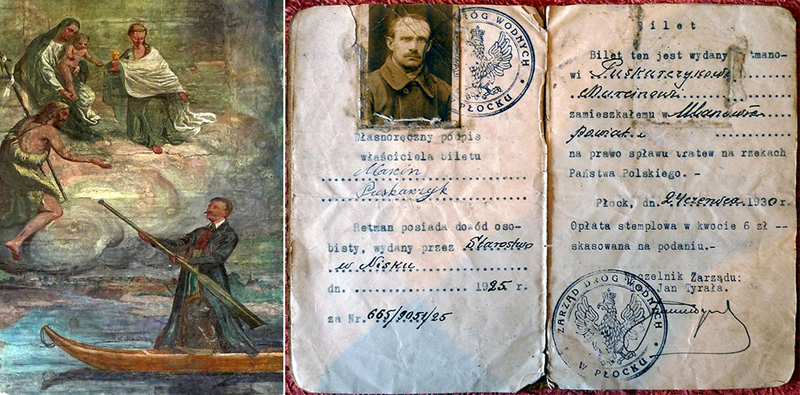 DRÓG WODNYCH
W PŁOCKU
Własnoręczny podpis
właściciela biletu
Marcin
Puskarzyk
Retman posiada dowód oso-
bisty, wydany przez Starostwo
w Nisku
dn. 1925 r.
za Nr. 665/9051/25
Bilet
Bilet ten jest wydany
wi Puskarczykowi
Marcinowi
zamieszkałemu w Ulanowie
powiat
na prawo spławu tratew na rzekach
Państwa Polskiego.-
Płock, dn. 24 czerwca 1930 r.
Opłata stemplowa w kwocie 6 zł --
skasowana na podaniu.-
Naczelnik Zarządu:
Jan Tyrała.
ZARZĄD DRÓG WODNYCH
W PŁOCKU